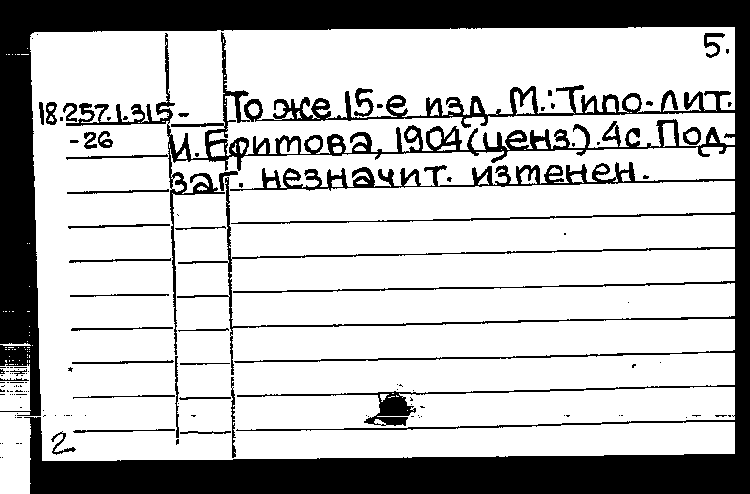 5.
18.257.1.315- То же. 15-е изд. М.: Типо-лит.
-26 И. Ефимова, 1904 (ценз.). 4 с. Под-
заг. незначит. изменен.
2